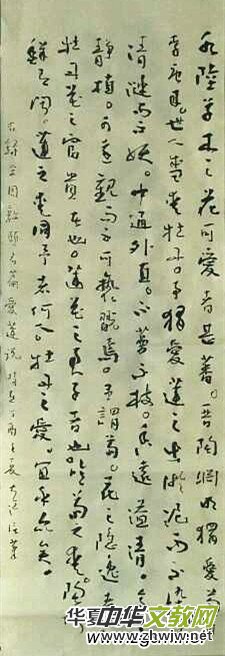 水陸草木之花可愛者甚蕃。晋陶淵明獨愛菊
李唐來。世人愛牡丹。予獨愛蓮之出淤泥而不染
清漣而不妖。中通外直。不蔓不枝。香遠溢清。亭
静植。可遠觀而不可褻翫焉。予謂菊。花之隱逸者
牡丹花之富貴者也。蓮花之君子者也。噫菊之愛陶
鮮有聞。蓮之愛同予者何人。牡丹之愛。宜乎衆矣。
右録宋周敦頤名篇愛蓮説 時在丁酉之夏
华夏中华文教网
www.zghwjw.net